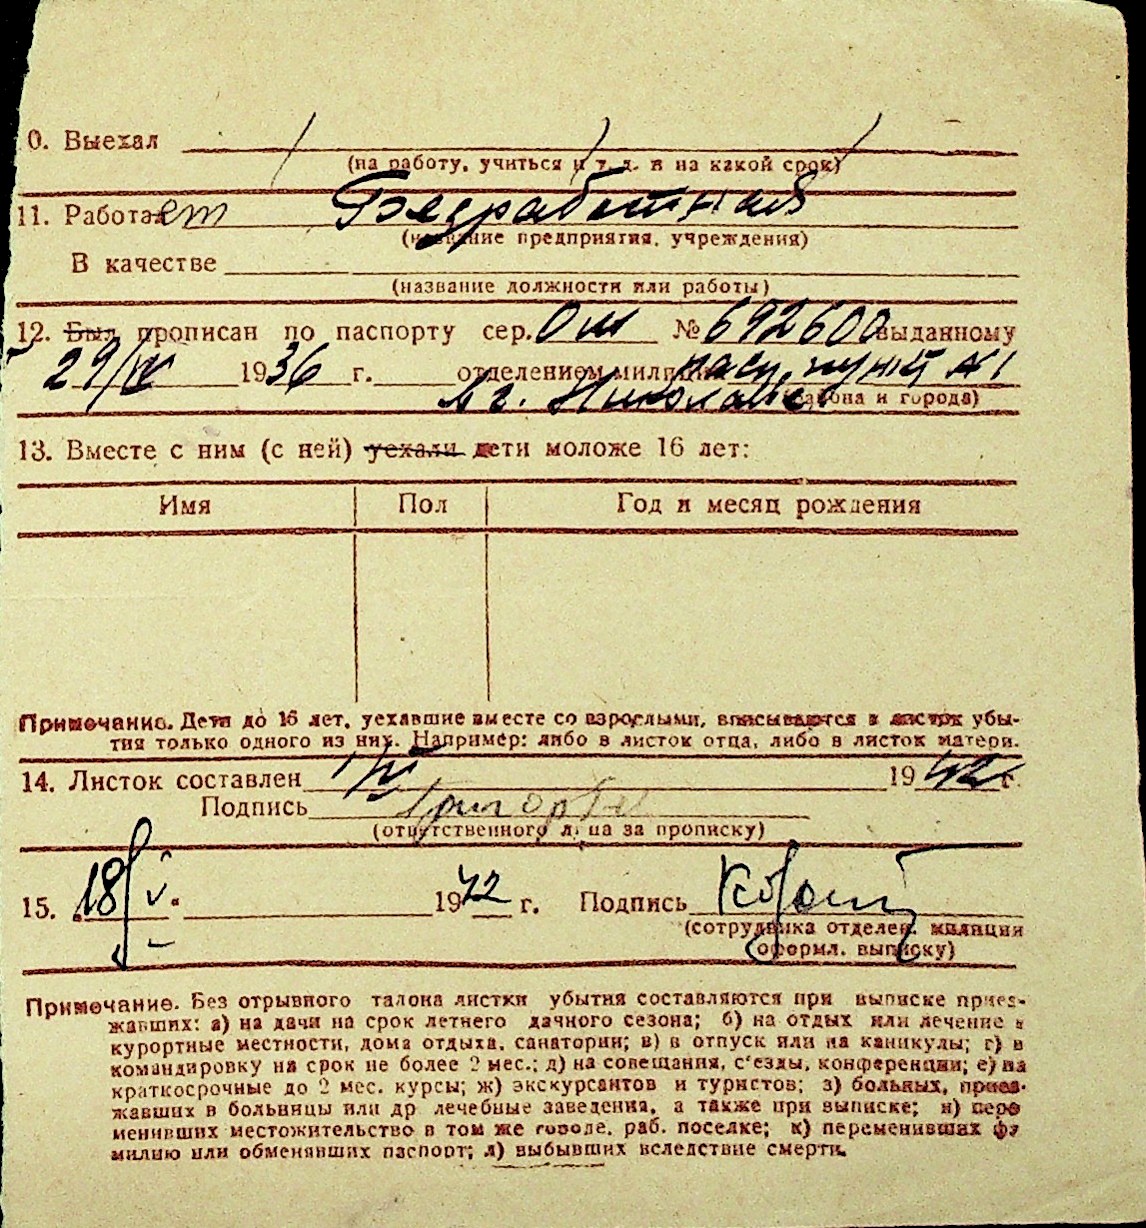 0. Выехал
(на работу, учиться и т. д. и на какой срок)
11. Работает Безработная
(название предприятия, учреждения)
В качестве
(название должности или работы)
12. Был прописан по паспорту сер. Ош № 692600 выданному
29/IV 1936 г. отделением милиции пасп. пункт №1
в г. Николаев района и города)
13. Вместе с ним (с ней) уехали дети моложе 16 лет:
Имя Пол Год и месяц рождения
Примечание. Дети до 16 лет, уехавшие вместе со взрослыми, вписываются в листок убы-
тия только одного из них. Например: либо в листок отца, либо в листок матери.
14. Листок составлен 1942 г.
Подпись
(ответственного лица за прописку)
15. 18/V 1942 г. Подпись
(сотрудника отделен. милиции
оформл. выписку)
Примечание. Без отрывного талона листки убытия составляются при выписке приез-
жавших: а) на дачи на срок летнего дачного сезона; б) на отдых или лечение в
курортные местности, дома отдыха, санатории; в) в отпуск или на каникулы; г) в
командировку на срок не более 2 мес.; д) на совещания, с'езды, конференции; е) на
краткосрочные до 2 мес. курсы; ж) экскурсантов и туристов; з) больных, приез-
жавших в больницы или др лечебные заведения, а также при выписке; и) пере
менивших местожительство в том же городе, раб. поселке; к) переменивших фа
милию или обменявших паспорт; л) выбывших вследствие смерти.